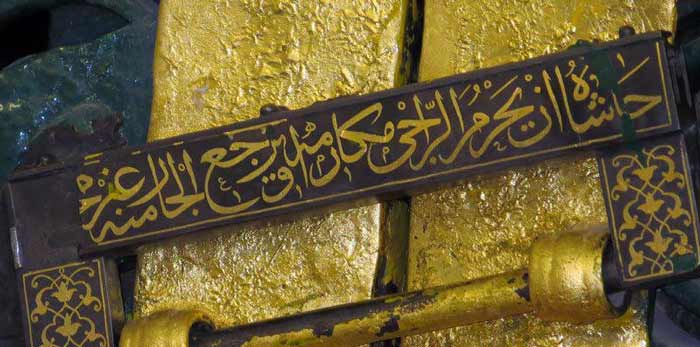 حاشاه ان يحرم الراجى مكارمه او يرجع الجار منه غير